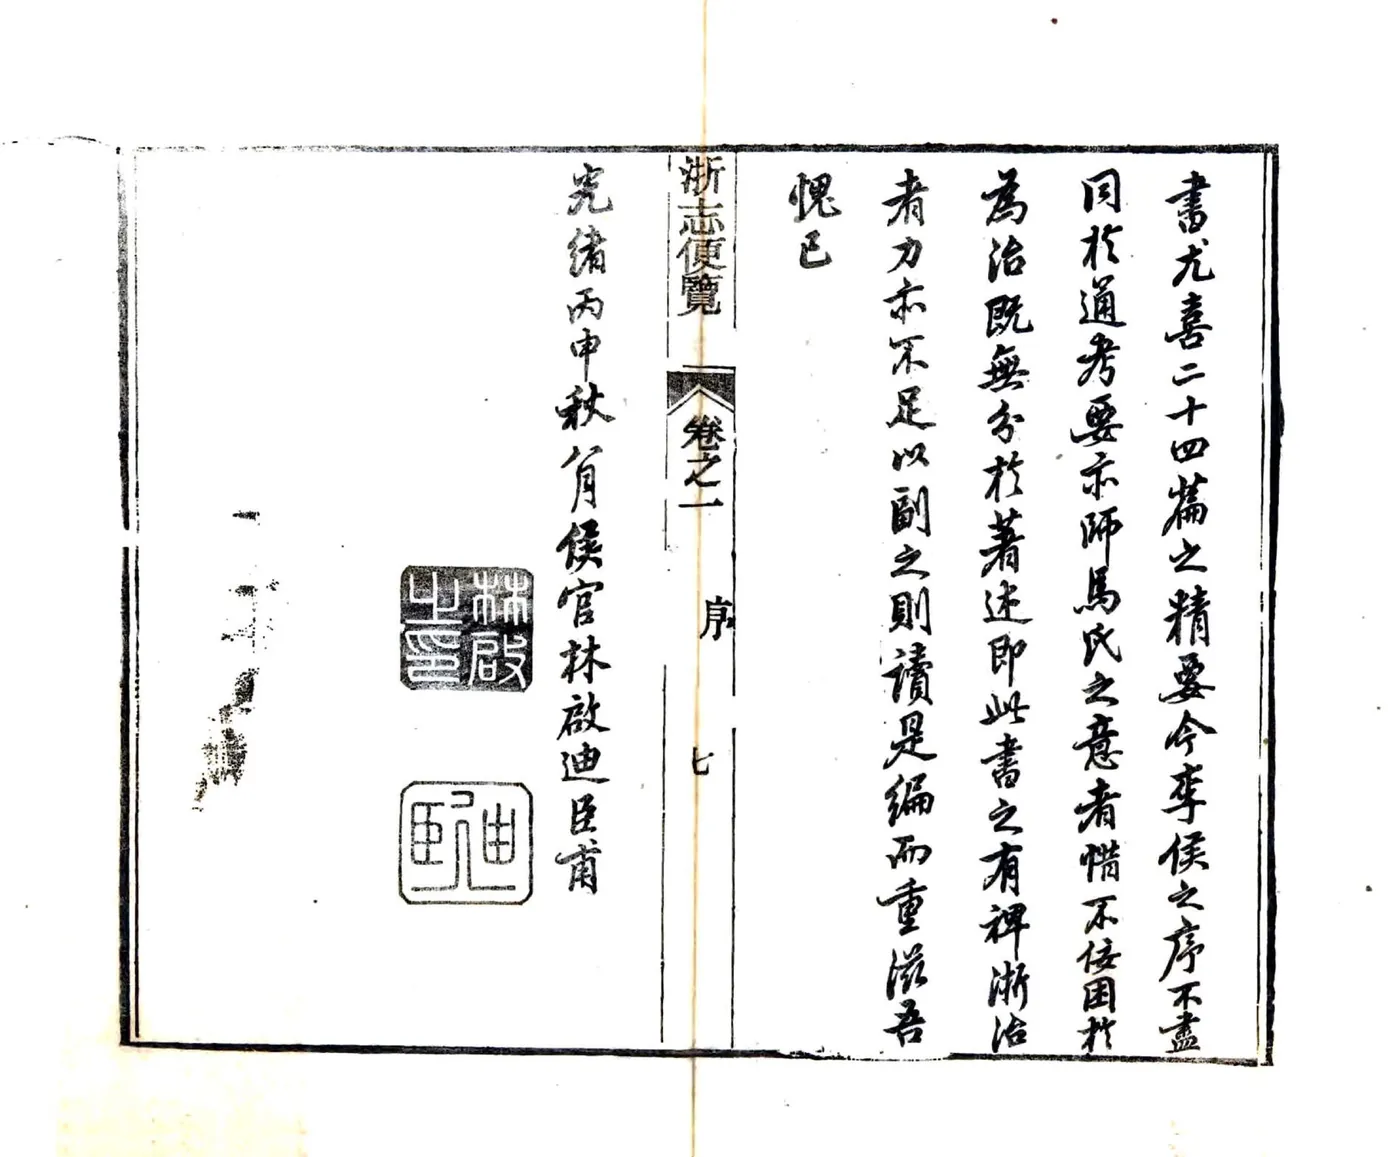 書尤喜二十四篇之精要今李侯之序不盡
同於通考要亦師馬氏之意者惜不佞困於
為治既無分於著述即此書之有裨浙治
者力亦不足以副之則讀是編而重滋吾
愧已
浙志便覽
卷之一
序
七
光緒丙申秋八月侯官林啟迪臣甫
林啟之印
迪臣